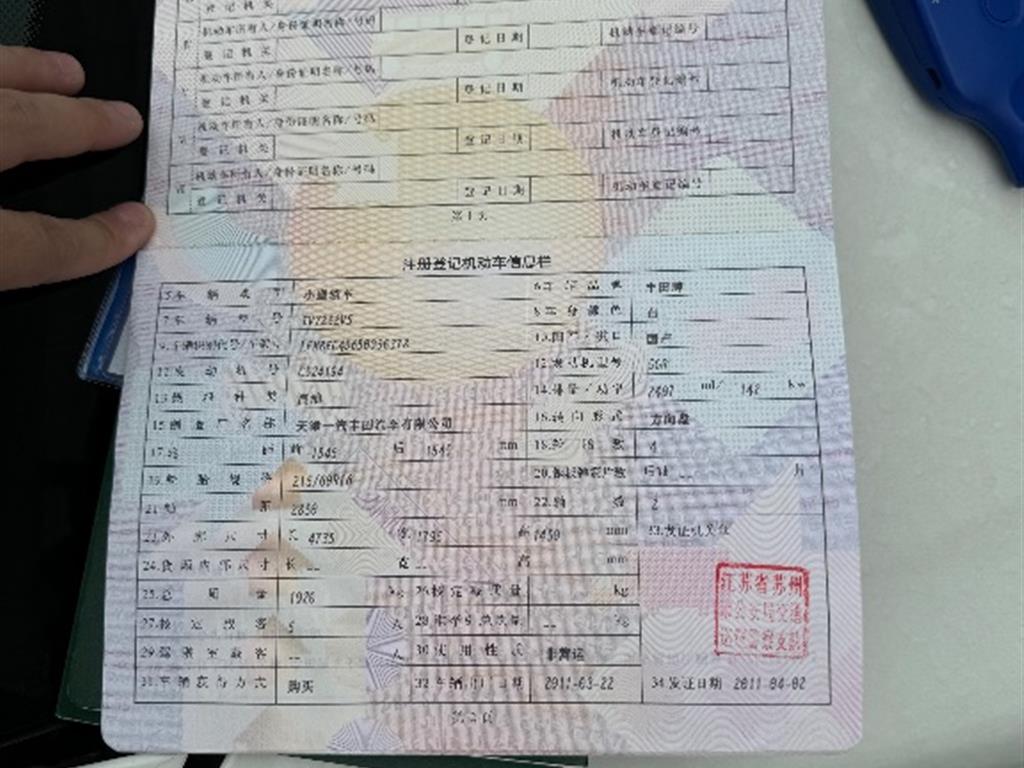 登记机关
机动车所有人/身份证明名称/号码
登记机关 登记日期 机动车登记编号
机动车所有人/身份证明名称/号码
登记机关 登记日期 机动车登记编号
机动车所有人/身份证明名称/号码
登记机关 登记日期 机动车登记编号
机动车所有人/身份证明名称/号码
登记机关 登记日期 机动车登记编号
第1页
注册登记机动车信息栏
5.车辆类型 小型轿车 6.车辆品牌 丰田牌
7.车辆型号 8.车身颜色 白
9.车辆识别代号/车架号 10.国产/进口 国产
11.发动机号 12.发动机型号 5GR
13.燃料种类 汽油 14.排量/功率 2497 ml/ kw
15.制造厂名称 天津一汽丰田汽车有限公司 16.转向形式 方向盘
17.轮距 前 1545 后 1545 mm 18.轮胎数 4
19.轮胎规格 215/60R16 20.钢板弹簧片数 后轴 -- 片
21.轴距 2850 mm 22.轴数 2
23.外廓尺寸 长 4735 宽 1795 高 1450 mm 33.发证机关章
24.货厢内部尺寸 长 -- 宽 高 mm
25.总质量 1920 kg 26.核定载质量 kg
27.核定载客 5 人 28.准牵引总质量 -- kg
江苏省苏州
市公安局交通
巡逻警察支队
29.驾驶室载客 -- 人 30.使用性质 非营运
31.车辆获得方式 购买 32.车辆出厂日期 2011-03-22 34.发证日期 2011-04-02
第2页